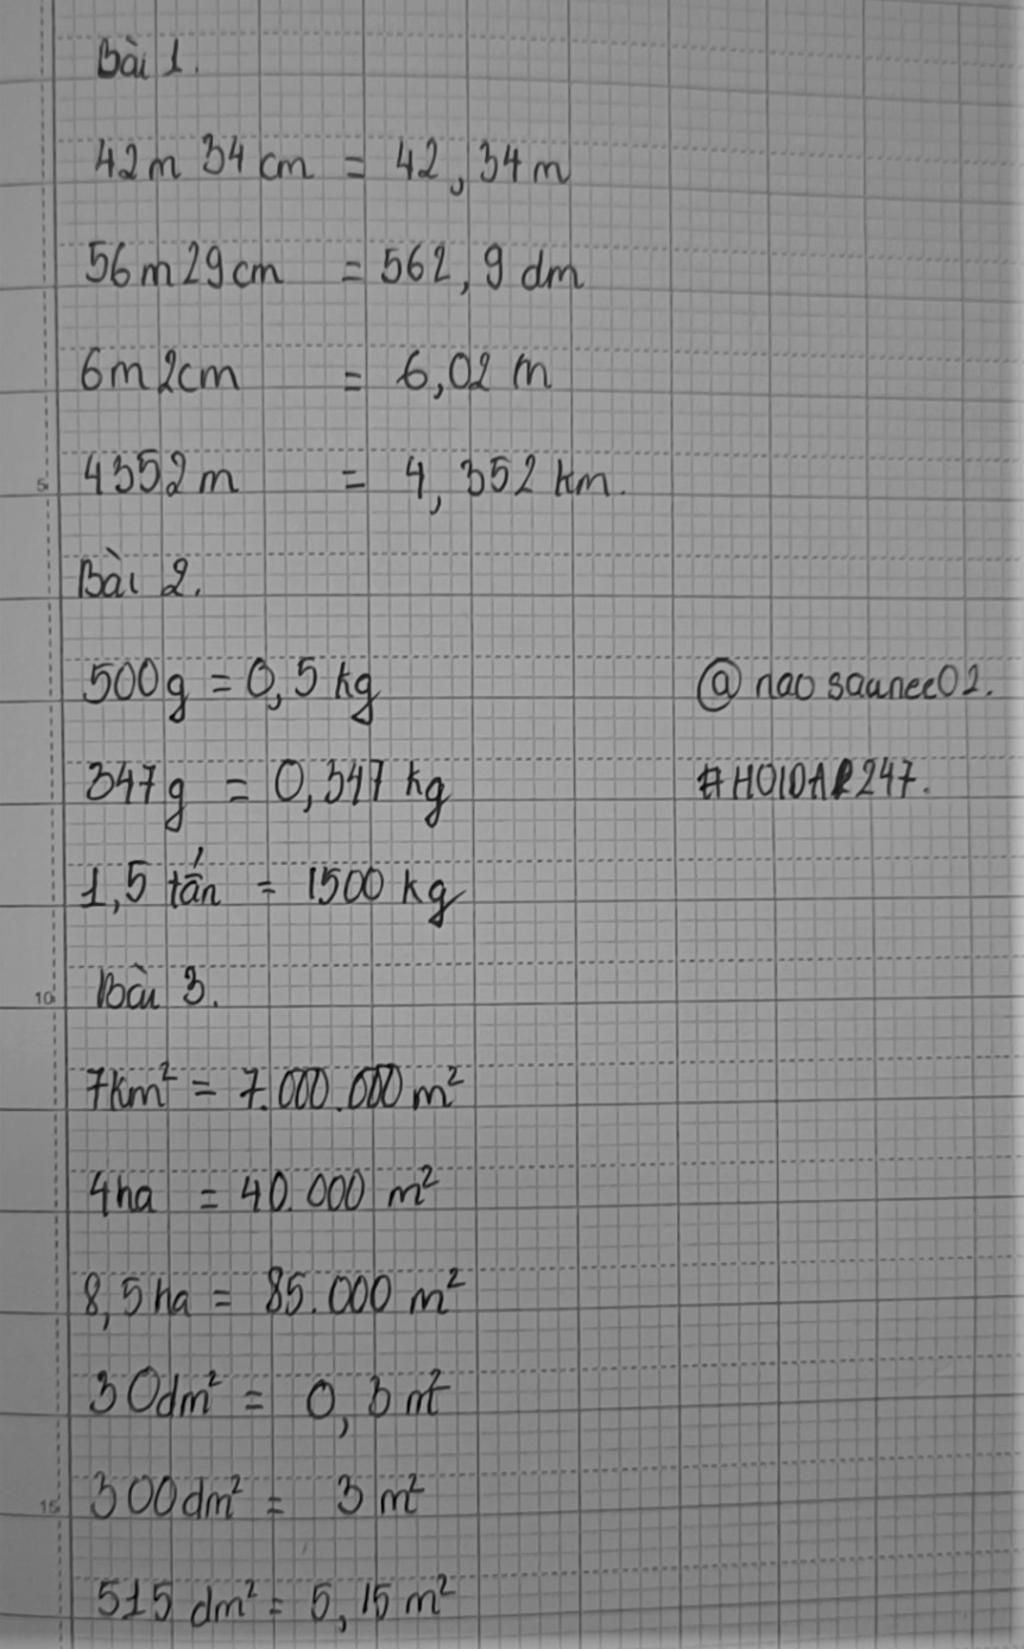 Bài 1.
42m 34cm = 42,34m
56m29cm =562,9 dm
6m2cm = 6,02 m
5 4352m = 4,352 km.
Bài 2.
500g = 0,5 kg @ naosaunee02.
347g = 0,347 kg #HOIDAP247.
1,5 tấn = 1500 kg
10 Bài 3.
7km² = 7.000.000 m²
4ha = 40.000 m²
8,5 ha = 85.000 m²
30dm² = 0,3 m²
15 300dm² = 3 m²
515 dm² = 5,15 m²